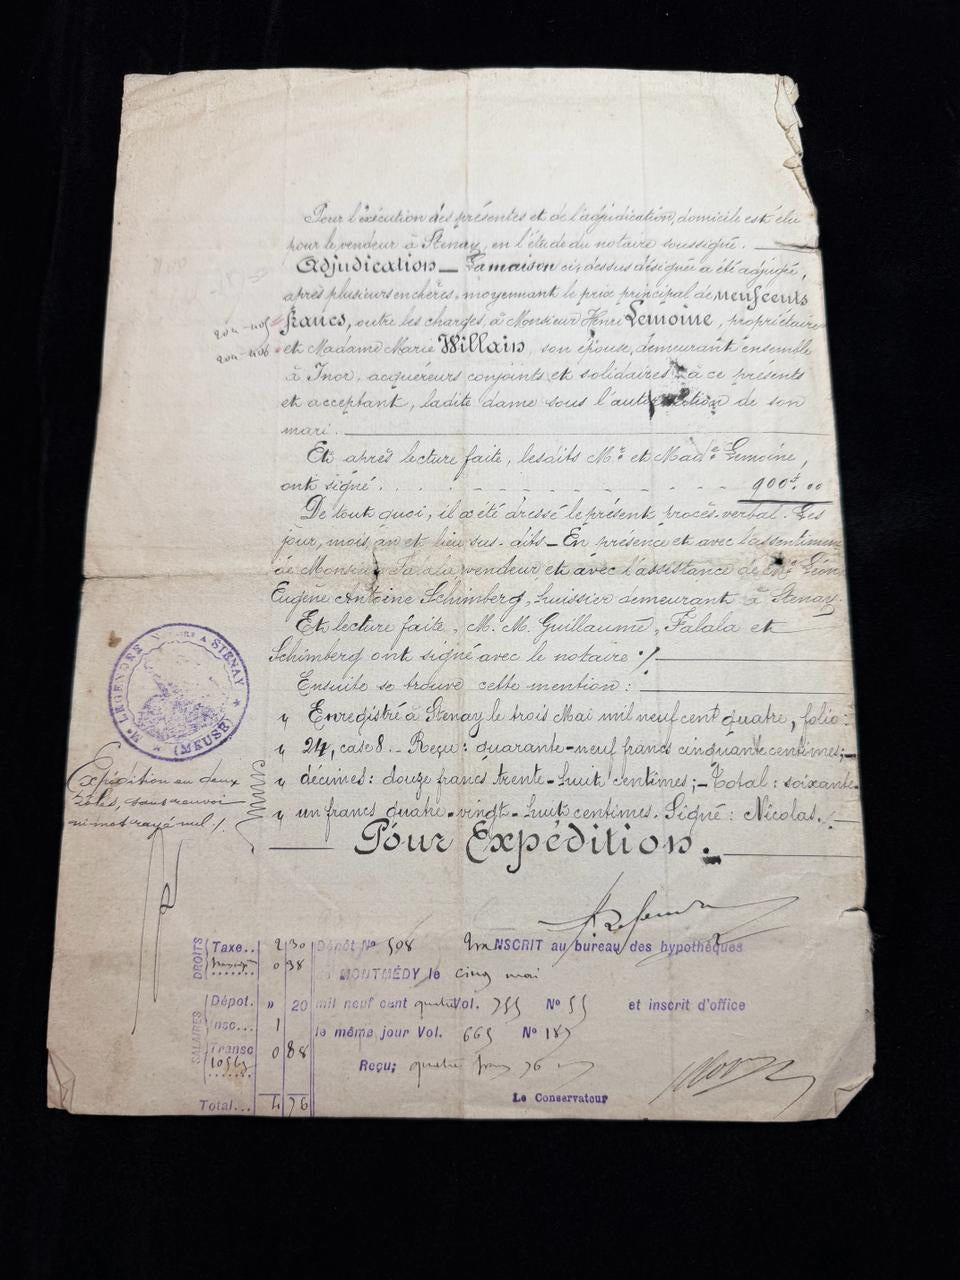 Pour l'exécution des présentes et de l'adjudication, domicile est élu
pour le vendeur à Stenay, en l'étude du notaire soussigné.
Adjudication _ La maison ci-dessus désignée a été adjugée,
après plusieurs enchères, moyennant le prix principal de neuf cents
francs, outre les charges, à Monsieur Henri Lemoine, propriétaire
et Madame Marie Willain, son épouse, demeurant ensemble
à Inor, acquéreurs conjoints et solidaires à ce présents
et acceptant, ladite dame sous l'autorisation de son
mari.
Et après lecture faite, lesdits Mr et Made Lemoine,
ont signé. 900f. 00
De tout quoi, il a été dressé le présent procès-verbal. Les
jour, mois, an et lieu sus-dits _ En présence et avec l'assentiment
de Monsieur Falala vendeur et avec l'assistance de Me Léon
Eugène Antoine Schimberg, huissier demeurant à Stenay.
Et lecture faite, M. M. Guillaume, Falala et
Schimberg ont signé avec le notaire ./.
Ensuite se trouve cette mention :
" Enregistré à Stenay le trois Mai mil neuf cent quatre, folio:
" 24, case 8. _ Reçu : quarante-neuf francs cinquante centimes;_
" décimes : douze francs trente-huit centimes; _ Total : soixante-
" un francs quatre-vingt-huit centimes. Signé : Nicolas.
Pour Expédition.
Me LEGENDRE NOTAIRE A STENAY
(MEUSE)
Expédition en deux
rôles, sans renvoi
ni mot rayé nul ./.
DROITS
Taxe.. 2 30
0 38
SALAIRES
Dépot. " 20
Insc... 1
Transc 0 88
Total... 4 76
Dépôt No 508 TRANSCRIT au bureau des hypothèques
MONTMÉDY le cinq mai
mil neuf cent quatre Vol. 755 No 55 et inscrit d'office
le même jour Vol. 665 No 187
Reçu; quatre francs 76
Le Conservateur